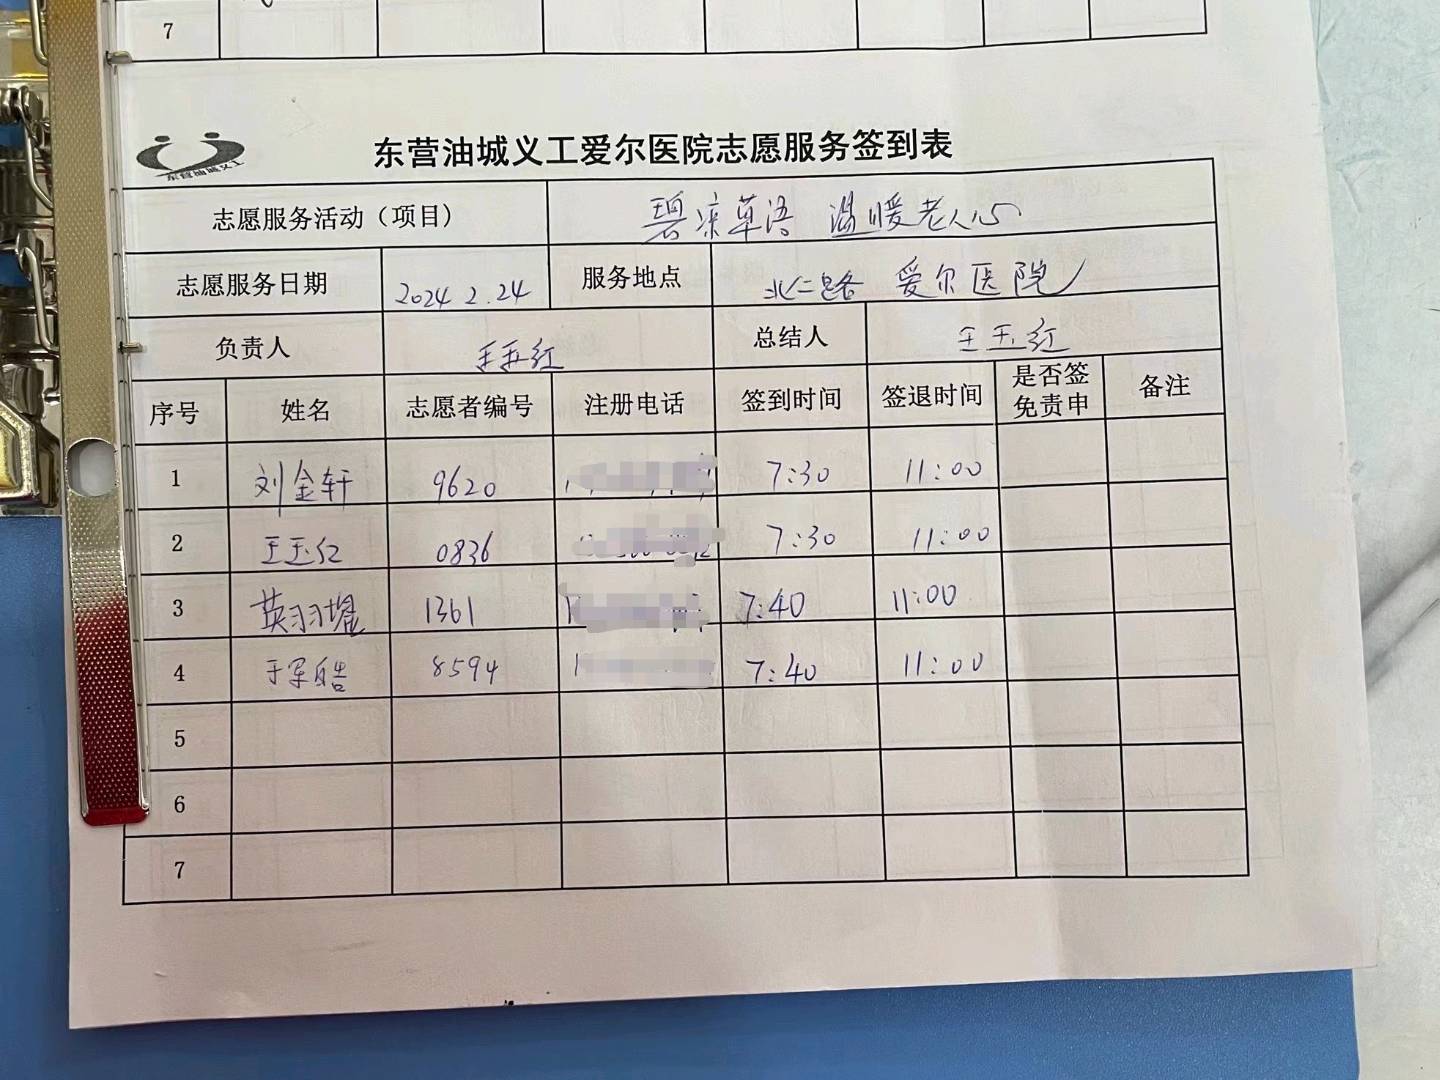 7
东营油城义工
东营油城义工爱尔医院志愿服务签到表
志愿服务活动（项目） 碧凉草语 温暖老人心
志愿服务日期 2024 2.24 服务地点 北二路 爱尔医院
负责人 王玉红 总结人 王玉红
序号 姓名 志愿者编号 注册电话 签到时间 签退时间 是否签免责申 备注
1 刘金轩 9620 7:30 11:00
2 王玉红 0836 7:30 11:00
3 1361 7:40 11:00
4 8594 7:40 11:00
5
6
7